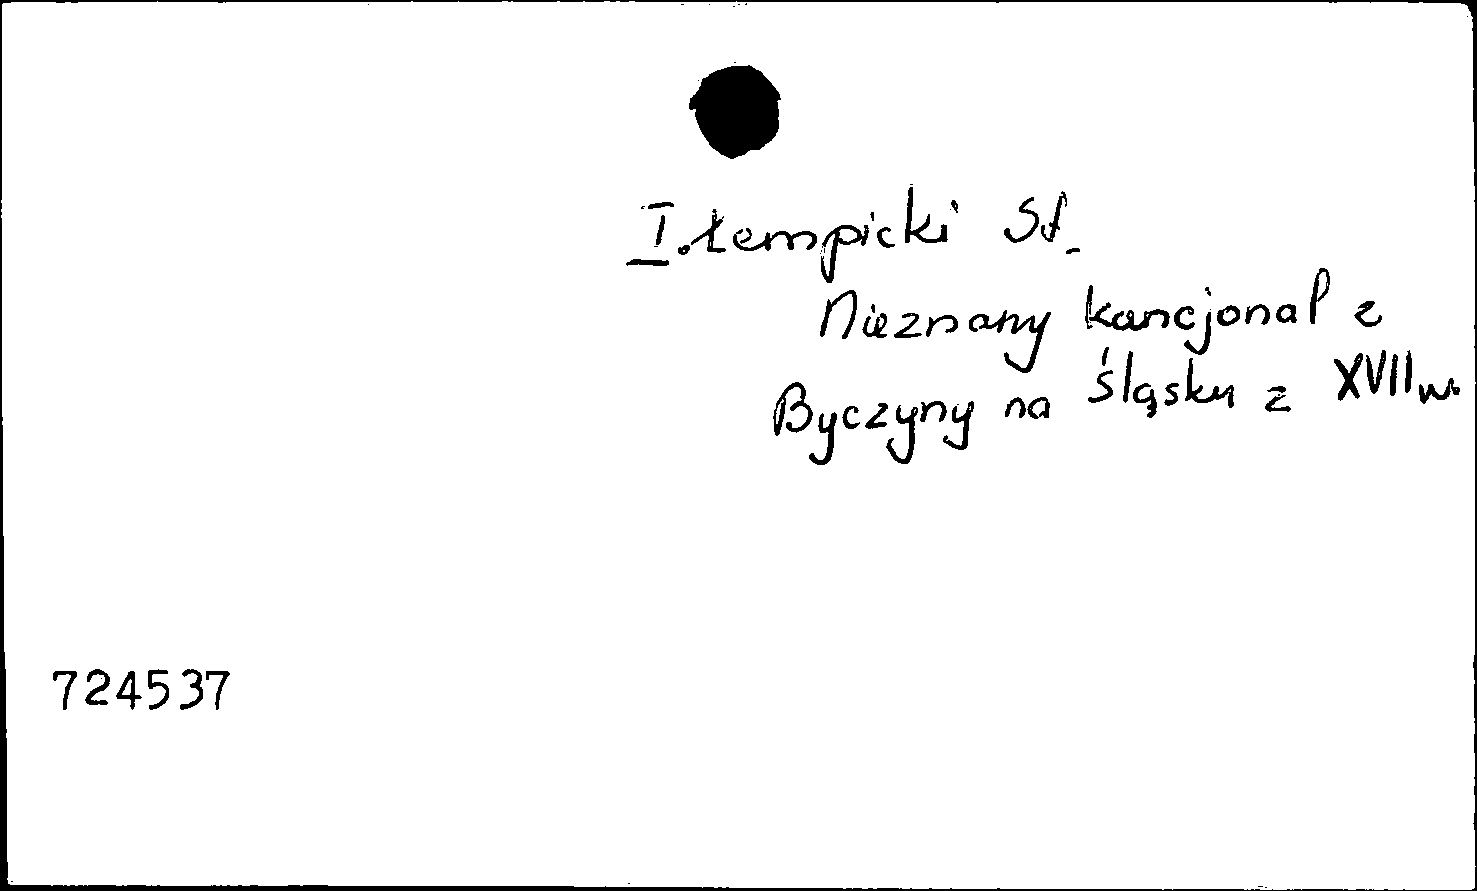 I. Łempicki St.
Nieznany kancjonał z
Byczyny na Śląsku z XVII w.
724537